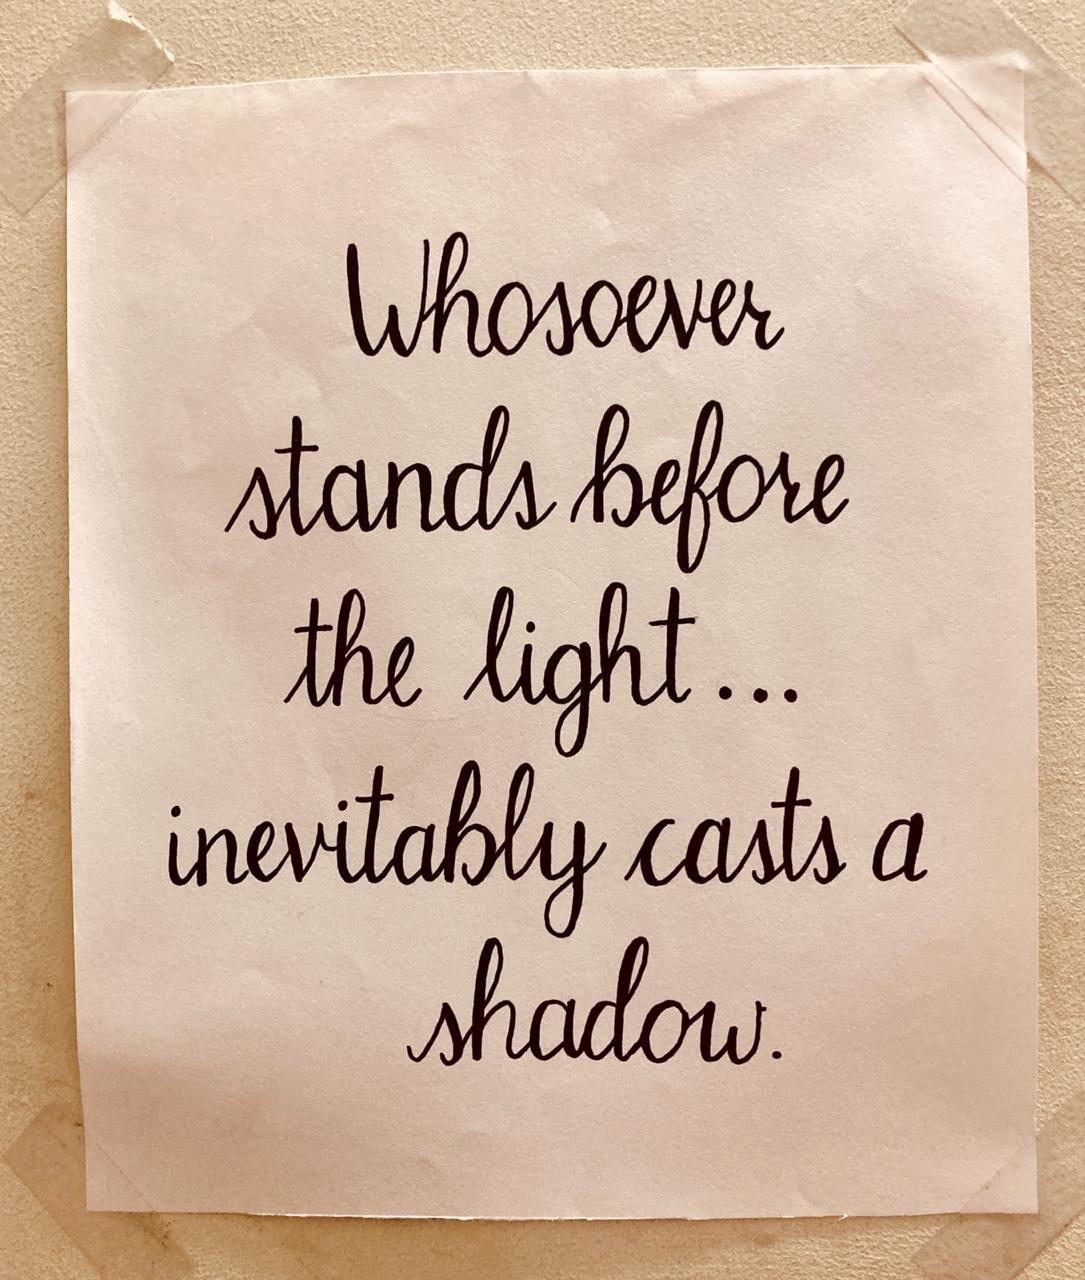 Whosoever
stands before
the light...
inevitably casts a
shadow.